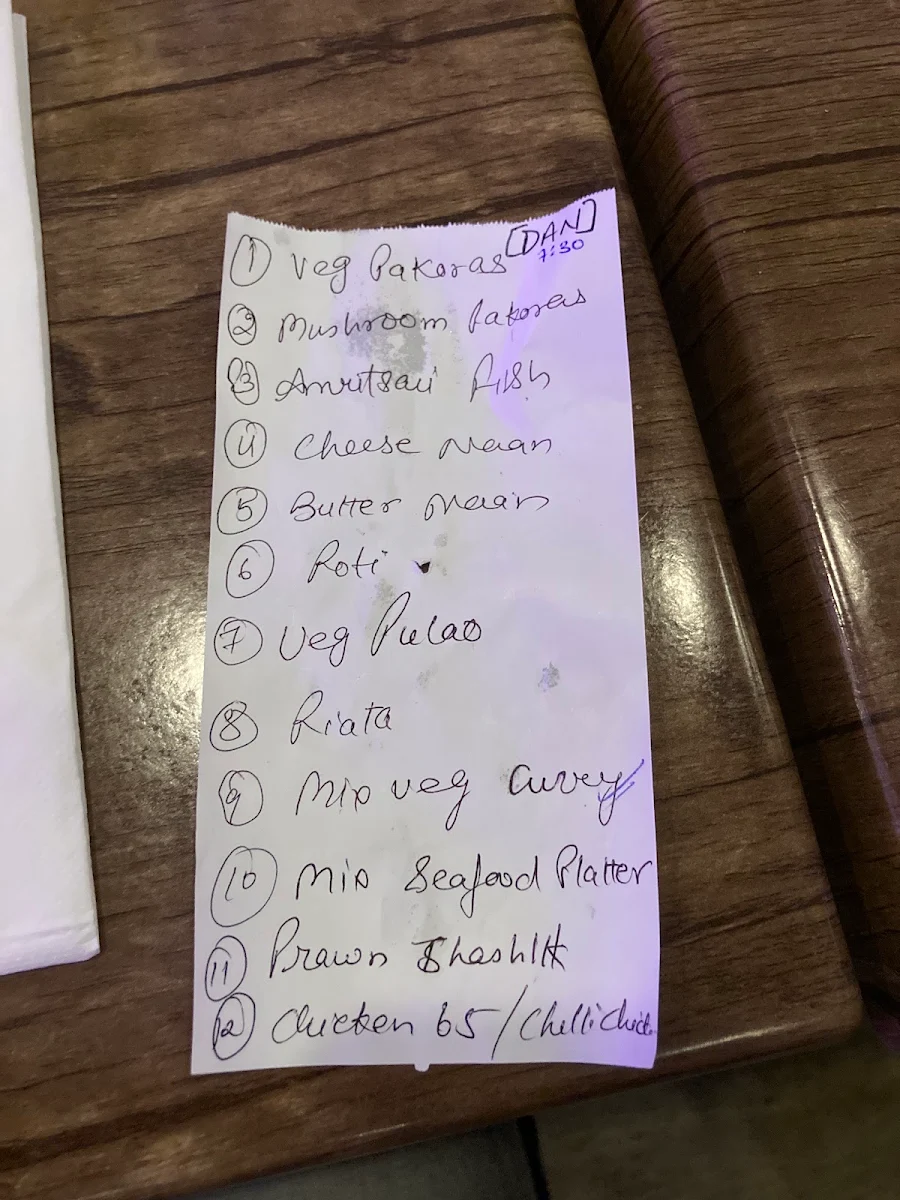 [DAN]
7:30
1 Veg Pakoras
2 Mushroom Pakoras
3 Amritsari Fish
4 Cheese Naan
5 Butter Naan
6 Roti
7 Veg Pulao
8 Riata
9 Mix veg Curry
10 Mix Seafood Platter
11 Prawn Shashlik
12 Chicken 65/Chilli Chick